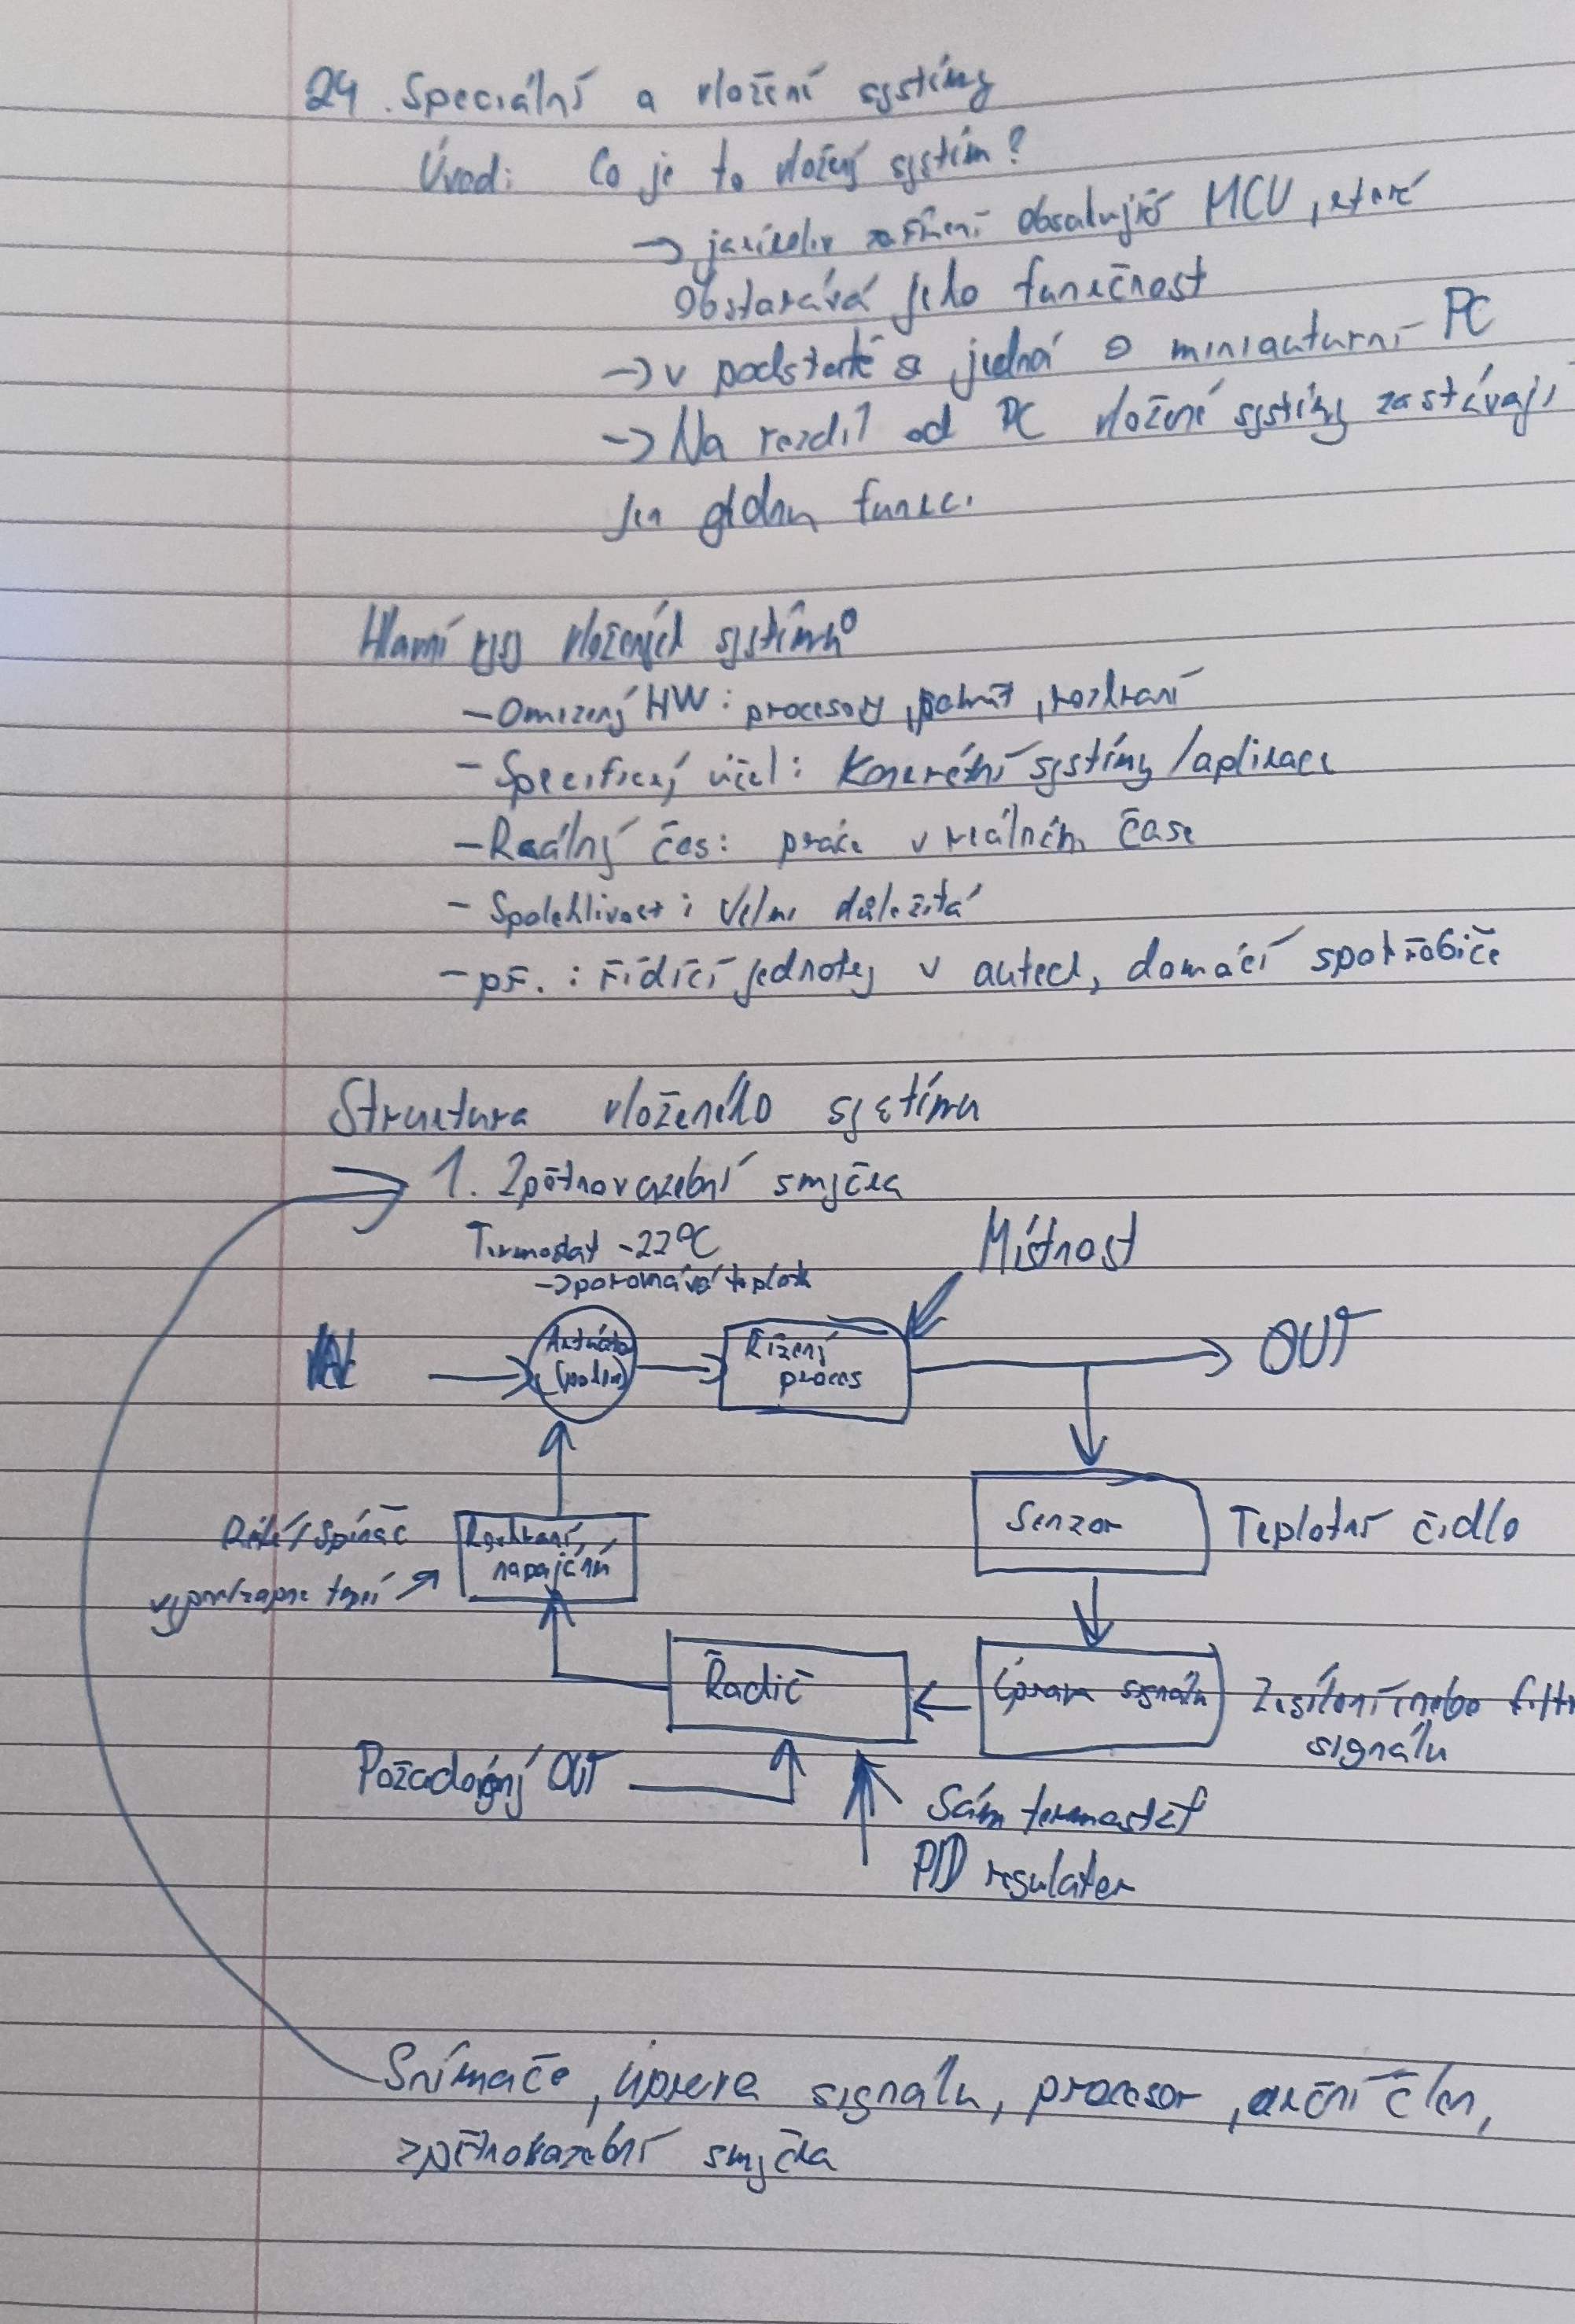 24. Speciální a vložení systémy
Úvod: Co je to vložený systém?
→ jakékoliv zařízení obsahující MCU, které
obstarává jeho funkčnost
→ v podstatě se jedná o miniauturní PC
→ Na rozdíl od PC vložené systémy zastávají
jen jednu funkci
Hlavní rysy vložených systémů
- Omezený HW: procesory, paměť, rozhraní
- Specifický účel: Konkrétní systémy/aplikace
- Reálný čas: práce v reálném čase
- Spolehlivost: Velmi důležitá
- př.: řídící jednotky v autech, domácí spotřebiče
Struktura vloženého systému
1. Zpětnovazební smyčka
Termostat -22°C
→ porovnává teplotu
Místnost
Aktuátor
Řízení
proces
OUT
Relé/spínač
vypne/zapne topí
Rozhraní,
napájení
Senzor
Teplotní čidlo
Řadič
Úprava signálu
Zesílení nebo filtr
signálu
Požadovaný OUT
Sám termostat
PID regulátor
Snímače, úprava signálu, procesor, akční člen,
zpětnovazební smyčka